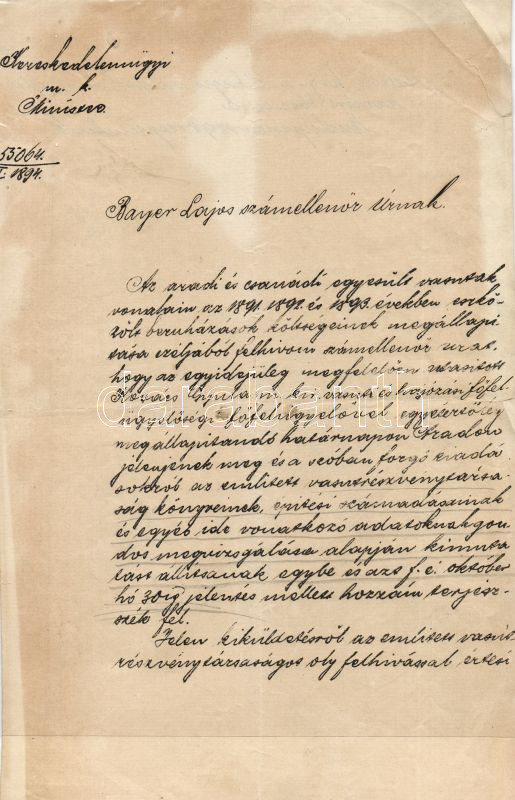 Kereskedelemügyi
m. k.
Minister.
53064.
I. 1894.
Bayer Lajos számellenőr Úrnak.
Az aradi és csanádi egyesült vasutak
vonalain az 1891. 1892. és 1893. években eszkö-
zölt beruházások költségeinek megállapi
tása czéljából felhivom számellenőr urat
hogy az egyidejüleg megfelelően utasitott
Kovács Gyula m. kir. vasuti és hajózási főfel
ügyelőségi főfelügyelővel egyetértőleg
megállapitandó határnapon Aradon
jelenjenek meg és a szóban forgó kiadá
sokról az emlitett vasutrészvénytársa-
ság könyveinek, épitési számadásainak
és egyéb ide vonatkozó adatoknak gon
dos megvizsgálása alapján kimuta
tást állitsanak egybe és azt f. é. október
hó 30ig jelentés mellett hozzám terjesz-
szék fel.
Jelen kiküldetésről az emlitett vasut
részvénytársaságot oly felhivással értesi